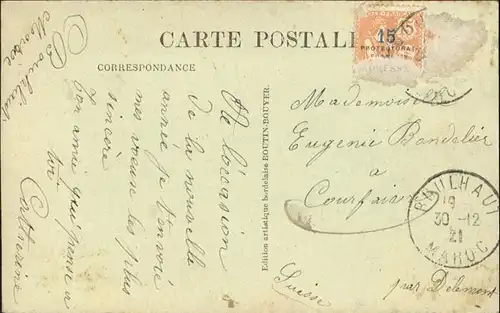 Monsieur Boulhaut
CARTE POSTALE
CORRESPONDANCE
A l'occasion
de la nouvelle
année je t'envoie
mes voeux les plus
sincère
ton amie qui pense à
toi
Catherine
Edition artistique bordelaise BOUTIN-BOUYER.
15
PROTECTORAT
Mademoiselle
Eugenie Bandelier
a
Courfaivre
Suisse
par Delemont
BOULHAUT
19
30-12
21
MAROC